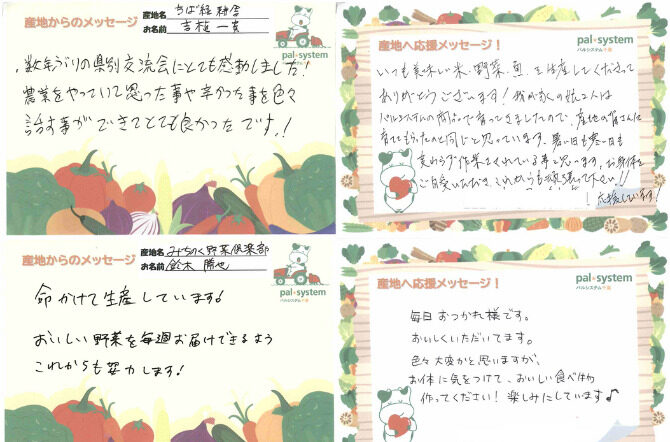 産地からのメッセージ
産地名 ちば緑耕舎
お名前 吉植 一貴
pal*system
数年ぶりの県別交流会にとても感動しました!
農業をやっていて思った事や辛かった事を色々
話す事ができてとても良かったです!
産地へ応援メッセージ!
pal*system
パルシステム千葉
いつも美味しい米、野菜、魚、生産してくださって
ありがとうございます!我が家の娘2人は
パルシステムの商品で育ってきましたので、産地の皆さんに
育ててもらったのと同じと思っています。暑い日も寒い日も
変わらず作業をされている事と思います。お身体を
ご自愛いただき、これからも頑張って下さい!!
応援しています!
産地からのメッセージ
産地名 みちのく野菜倶楽部
お名前 鈴木 勝也
pal*system
命かけて生産しています!
おいしい野菜を毎週お届けできるよう
これからも努力します!
産地へ応援メッセージ!
pal*system
パルシステム千葉
毎日おつかれ様です。
おいしくいただいてます。
色々大変かと思いますが、
お体に気をつけて、おいしい食べ物
作ってください!楽しみにしています♪